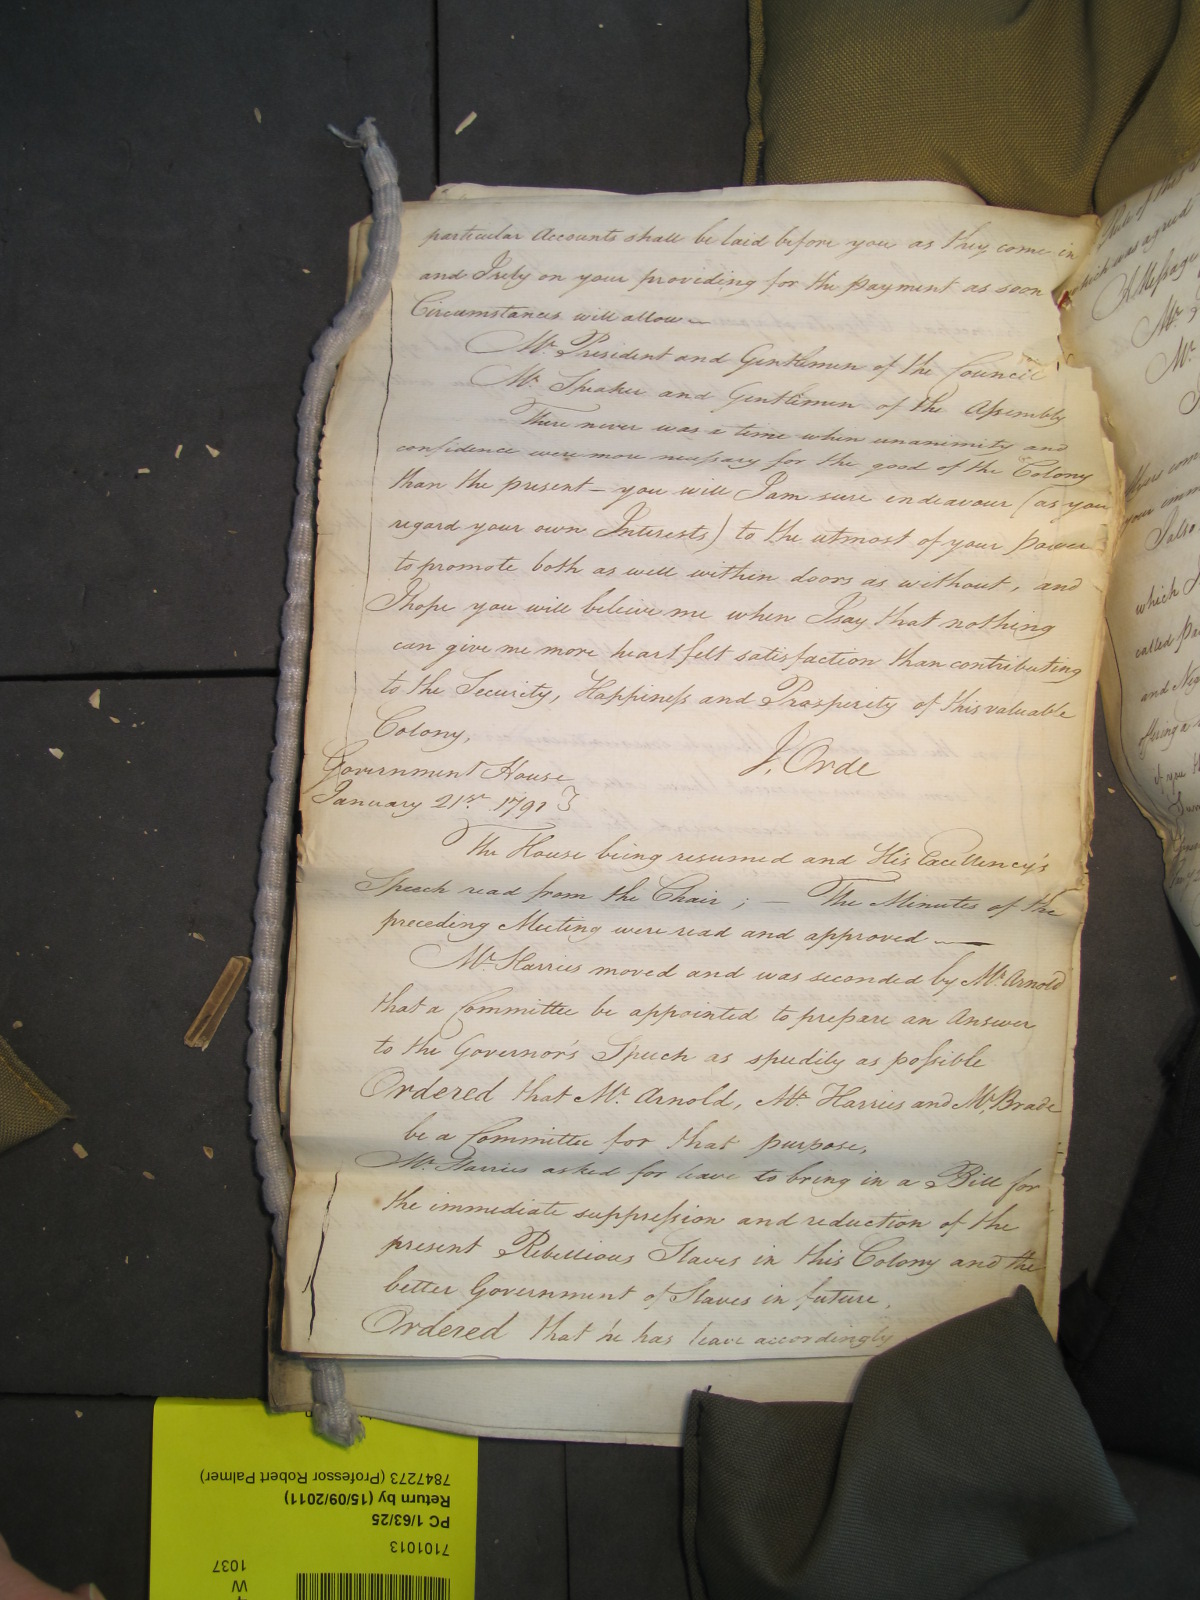 particular Accounts shall be laid before you as they come in
and I rely on your providing for the payment as soon
Circumstances will allow
Mr. President and Gentlemen of the Council
Mr. Speaker and Gentlemen of the Assembly
There never was a time when unanimity and
confidence were more necessary for the good of the Colony
than the present – you will I am sure endeavour (as you
regard your own Interests) to the utmost of your power
to promote both as well within doors as without, and
I hope you will believe me when I say that nothing
can give me more heartfelt satisfaction than contributing
to the Security, Happiness and Prosperity of this valuable
Colony,
J. Orde
Government House
January 21st. 1791
The House being resumed and His Excellency's
Speech read from the Chair; — The Minutes of the
preceding Meeting were read and approved —
Mr. Harries moved and was seconded by Mr. Arnold
that a Committee be appointed to prepare an Answer
to the Governor's Speech as speedily as possible
Ordered that Mr. Arnold, Mr. Harries and Mr. Brade
be a Committee for that purpose,
Mr. Harries asked for leave to bring in a Bill for
the immediate suppression and reduction of the
present Rebellious Slaves in this Colony and the
better Government of Slaves in future,
Ordered that he has leave accordingly
which was agreed
A Message
Mr.
Mr.
I also
which
called
and
offering a
if you
7847273 (Professor Robert Palmer)
Return by (15/09/2011)
PC 1/63/25
7101013
W
1037